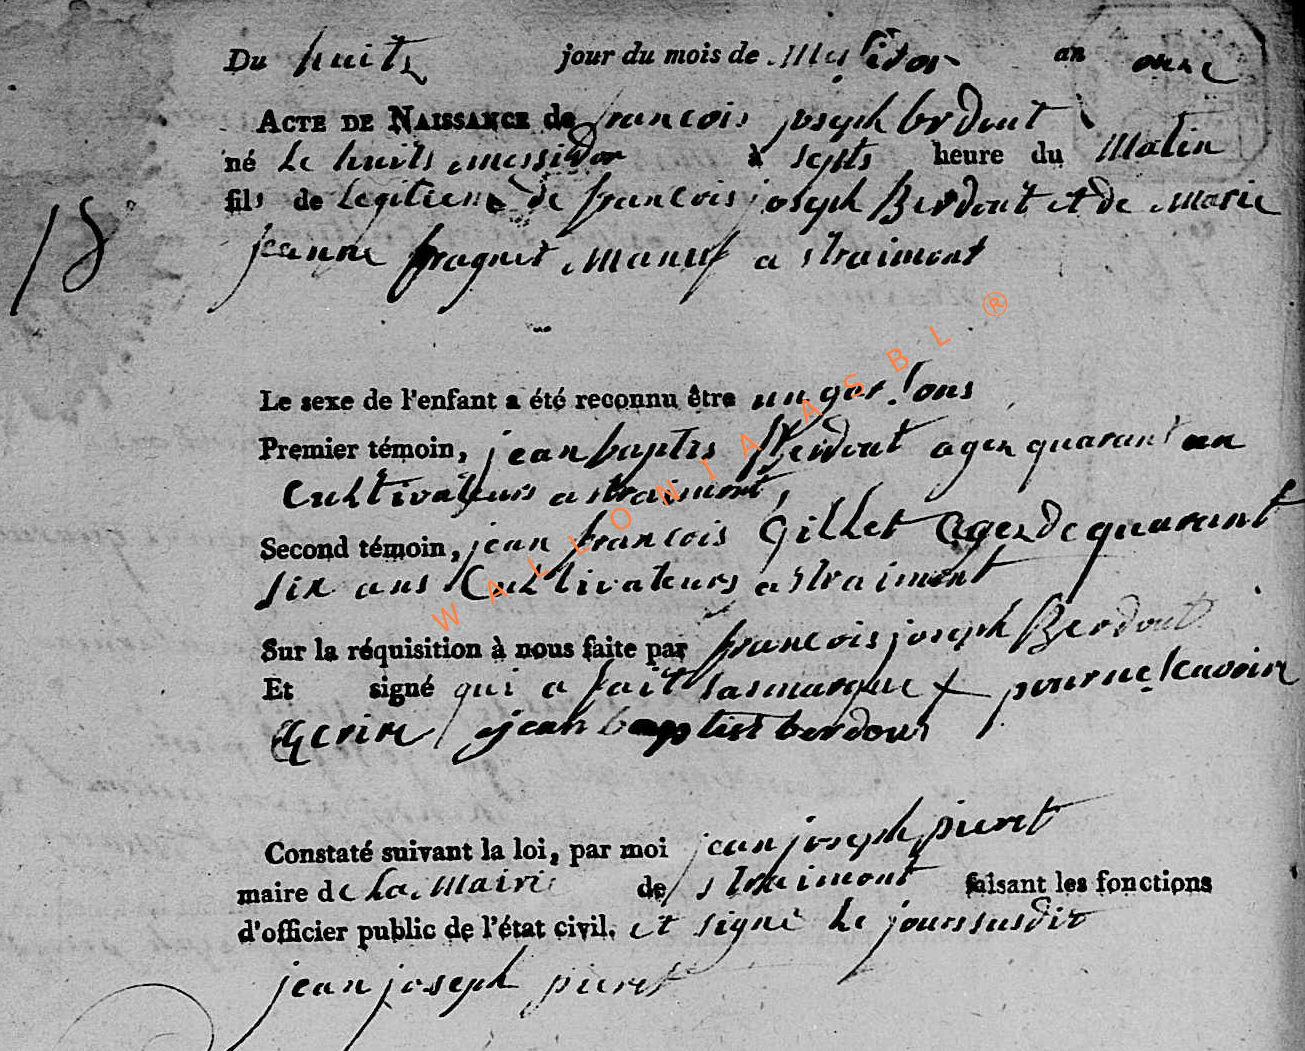 Du huits jour du mois de Messidor an onze
ACTE DE NAISSANCE de francois joseph berdout
né le huits messidor à septs heure du Matin
fils de legitiem de francois joseph Berdout et de Marie
jeanne fraquet Manuf a straimont
18
Le sexe de l'enfant a été reconnu être un garsons
Premier témoin, jean baptis Berdout agez quarant un
Cultivateurs a straimont,
Second témoin, jean francois Gillet agez de quarant
six ans Cultivateurs a straimont
Sur la réquisition à nous faite par francois joseph Berdout
Et signé qui a fait sa marque + pour ne scavoire
Ecrire jean baptist berdout
Constaté suivant la loi, par moi jean joseph pieret
maire de la Mairi de straimont faisant les fonctions
d'officier public de l'état civil. et signé le jour susdit
jean joseph pieret
WALLONIA ASBL ®